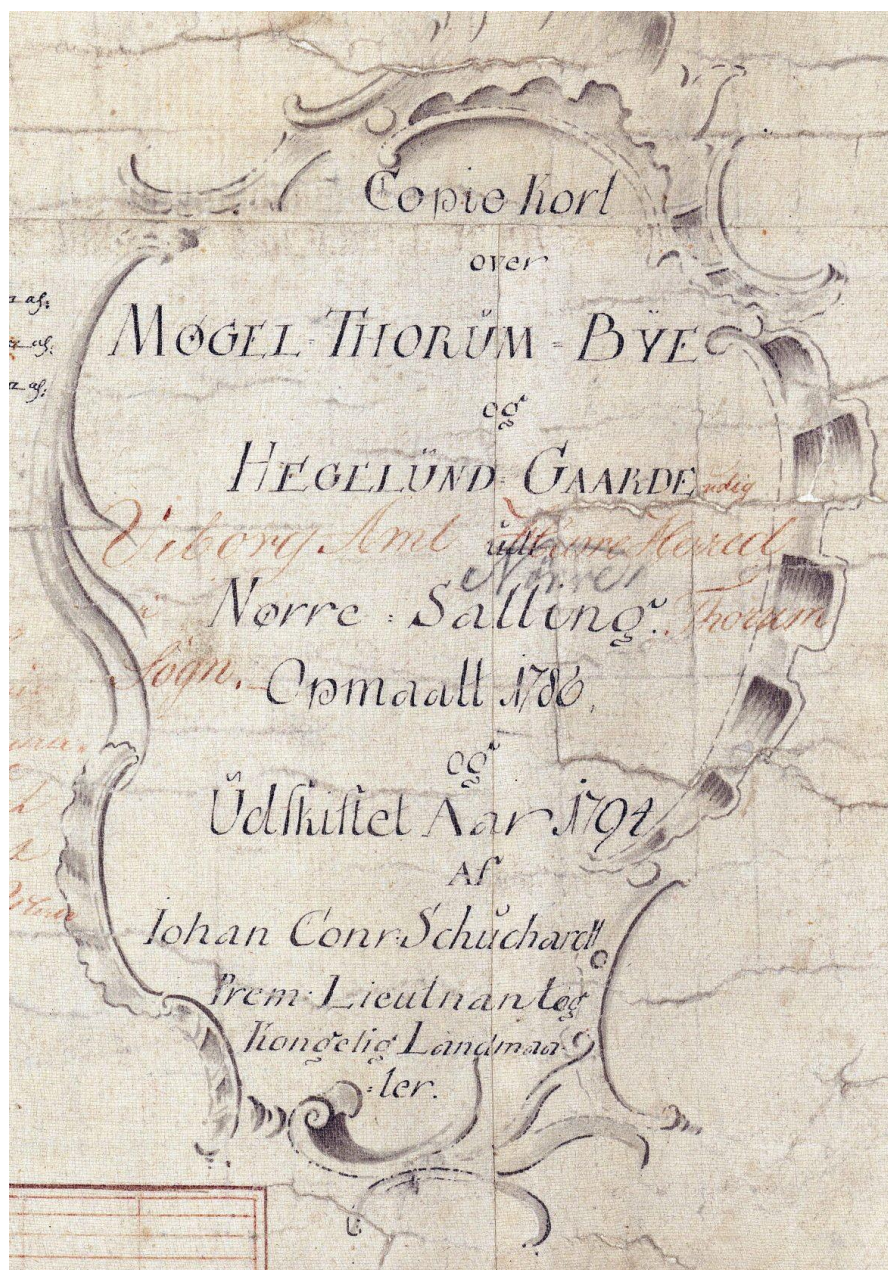 Copie Kort
over
MØGEL=THORŬM=BŸE
og
HEGELŬND=GAARDE
Viborg Amt Nørre Hared
Nørre
Nørre=Salling. Thorum
Sogn.
Opmaalt 1786.
og
Ŭdskiftet Aar 1794
Af
Iohan Conr: Schŭchardt
Prem: Lieutnant og
Kongelig Landmaa
=ler.